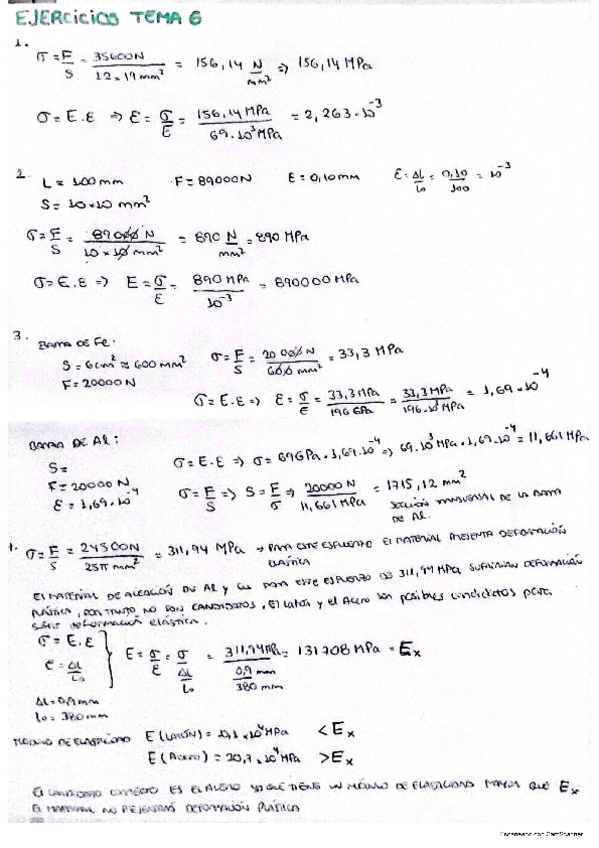 EJERCICIOS TEMA 6
1.
σ = F/S = 35600N / 12 x 19 mm² = 156,14 N/mm² ⇒ 156,14 MPa
σ = E.ε ⇒ ε = σ/E = 156,14 MPa / 69.10³ MPa = 2,263.10⁻³
2. L = 100mm F = 89000N ε = 0,10mm ε = ΔL/lo = 0,10/100 = 10⁻³
S = 10x10 mm²
σ = F/S = 89000 N / 10 x 10 mm² = 890 N/mm² = 890 MPa
σ = E.ε ⇒ E = σ/ε = 890 MPa / 10⁻³ = 890000 MPa
3. BARRA DE Fe:
S = 6cm² ≈ 600 mm² σ = F/S = 20000 N / 600 mm² = 33,3 MPa
F = 20000 N
σ = E.ε ⇒ ε = σ/E = 33,3 MPa / 196 GPa = 33,3 MPa / 196.10³ MPa = 1,69.10⁻⁴
BARRA DE Al:
S =
F = 20000 N
ε = 1,69.10⁻⁴
σ = E.ε ⇒ σ = 69 GPa.1,69.10⁻⁴ ⇒ 69.10³ MPa.1,69.10⁻⁴ = 11,661 MPa
σ = F/S ⇒ S = F/σ ⇒ 20000 N / 11,661 MPa = 1715,12 mm²
DE LA BARRA
DE Al.
σ = F/S = 24500N / 25π mm² = 311,94 MPa → PARA ESTE ESFUERZO EL MATERIAL PRESENTA DEFORMACIÓN
ELÁSTICA
EL MATERIAL DE ALEACIÓN DE Al y Cu PARA ESTE ESFUERZO DE 311,94 MPa SUFRIRIAN DEFORMACIÓN
PLÁSTICA, POR TANTO NO SON CANDIDATOS. El Latón y el Acero son posibles candidatos para
sufrir deformación elástica.
σ = E.ε
ε = ΔL/lo
E = σ/ε = σ / ΔL/lo = 311,94 MPa / 0,9 mm/380 mm = 131708 MPa = Ex
ΔL = 0,9 mm
lo = 380mm
MÓDULO DE ELASTICIDAD E (LATÓN) = 10,1 x 10⁴ MPa < Ex
E (ACERO) = 20,7 x 10⁴ MPa > Ex
El CANDIDATO CORRECTO ES EL ACERO YA QUE TIENE UN MÓDULO DE ELASTICIDAD MAYOR QUE Ex
EL MATERIAL NO DEFORMACIÓN PLÁSTICA
Escaneado con CamScanner